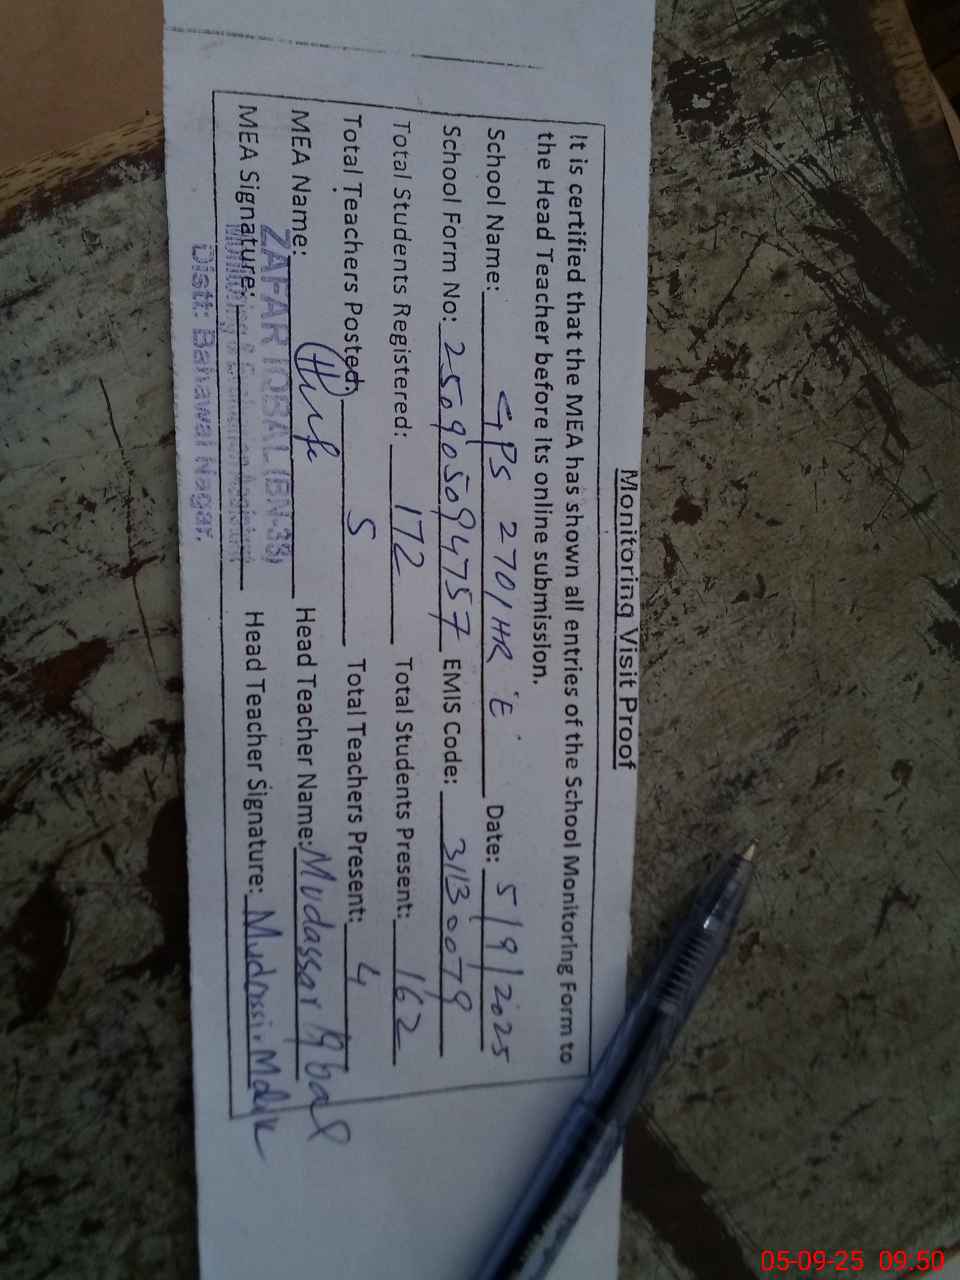 Monitoring Visit Proof
It is certified that the MEA has shown all entries of the School Monitoring Form to
the Head Teacher before its online submission.
School Name: GPS 270/HR 'E' Date: 5/9/2025
School Form No: 250905094757 EMIS Code: 31130079
Total Students Registered: 172 Total Students Present: 162
Total Teachers Posted: 5 Total Teachers Present: 4
MEA Name: ZAFAR IQBAL (BN-38) Head Teacher Name: Mudassar Iqbal
MEA Signature: Monitoring & Evaluation Assistant Head Teacher Signature:
Distt: Bahawal Nagar.
05-09-25 09.50